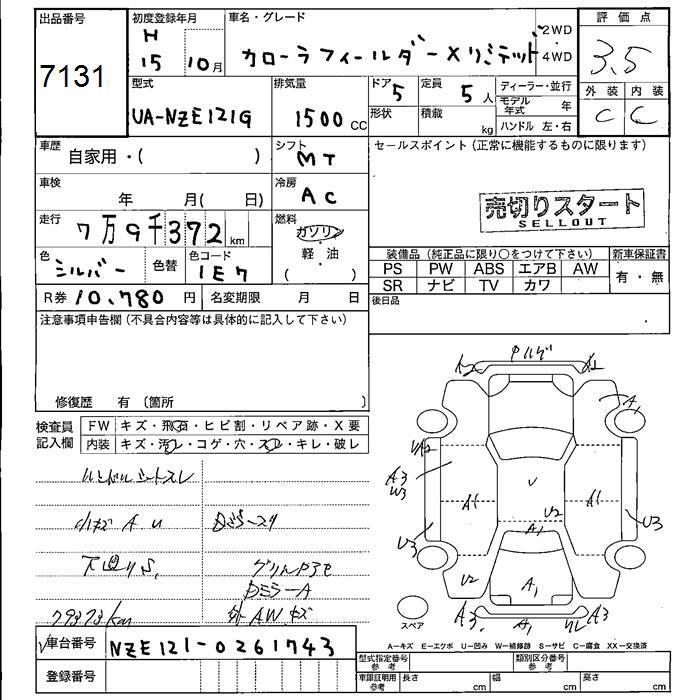 出品番号
7131
初度登録年月
H
15 10月
車名・グレード
カローラフィールダー Xリミテッド
2WD
4WD
評価点
3.5
外装 内装
C C
型式
UA-NZE121G
排気量
1500 CC
ドア
5
定員
5人
形状
積載
kg
ディーラー・並行
モデル年式 年
ハンドル 左・右
車歴
自家用・( )
シフト
MT
セールスポイント(正常に機能するものに限ります)
車検
年 月( 日)
冷房
AC
売切りスタート
SELLOUT
走行
7万9千372km
燃料
ガソリン
軽・油
( )
色
シルバー
色替
色コード
1E7
装備品(純正品に限り○をつけて下さい)
新車保証書
PS PW ABS エアB AW
SR ナビ TV カワ
有・無
R券 10,780円
名変期限 月 日
後日品
注意事項申告欄(不具合内容等は具体的に記入して下さい)
修復歴 有〔箇所 〕
検査員
記入欄
FW キズ・飛石・ヒビ割・リペア跡・X要
内装 キズ・汚レ・コゲ・穴・スレ・キレ・破レ
ハンドルシートスレ
小キズ A U
下廻りS,
79373km
外AWキズ
A2
A1
A1
UA2
A3
W3
A1
U
U2
A1
A1
U3
U3
U2
A1
A3
A1
A3
スペア
車台番号 NZE121-0261743
登録番号
A-キズ E-エクボ U-凹み W-補修跡 S-サビ C-腐食 XX-交換済
型式指定番号
参考
類別区分番号
参考
車庫証明用
参考
長さ cm
幅 cm
高さ cm